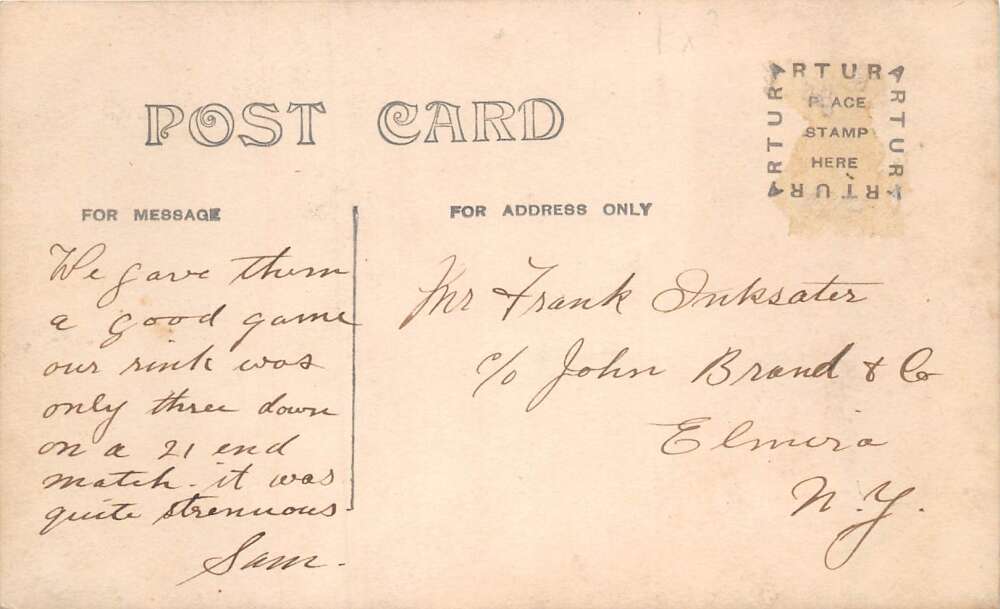 POST CARD
ARTURA
ARTURA
ARTURA
ARTURA
PLACE
STAMP
HERE
FOR MESSAGE
FOR ADDRESS ONLY
We gave them
a good game
our rink was
only three down
on a 21 end
match - it was
quite strenuous
Sam.
Mr Frank Inksater
c/o John Brand & Co
Elmira
N.Y.